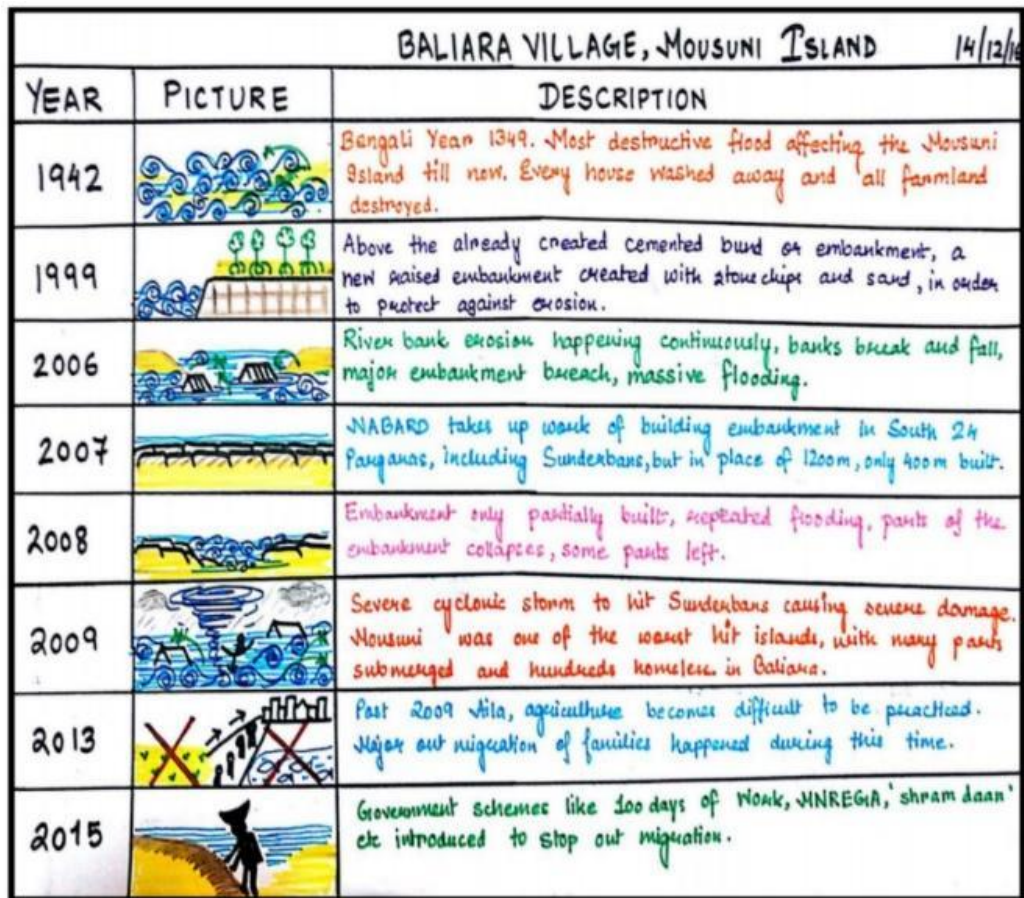 BALIARA VILLAGE, MOUSUNI ISLAND 14/12/
YEAR PICTURE DESCRIPTION
1942
Bengali Year 1349. Most destructive flood affecting the Mousuni
Island till now. Every house washed away and all farmland
destroyed.
1999
Above the already created cemented bund or embankment, a
new raised embankment created with stonechips and sand, in order
to protect against erosion.
2006
River bank erosion happening continuously, banks break and fall,
major embankment breach, massive flooding.
2007
NABARD takes up work of building embankment in South 24
Parganas, including Sunderbans, but in place of 1200m, only 400m built.
2008
Embankment only partially built, repeated flooding, parts of the
embankment collapses, some parts left.
2009
Severe cyclonic storm to hit Sunderbans causing severe damage.
Mousuni was one of the worst hit islands, with many parts
submerged and hundreds homeless in Baliara.
2013
Post 2009 Aila, agriculture becomes difficult to be practiced.
Major out migration of families happened during this time.
2015
Government schemes like 100 days of Work, MNREGA, 'shram daan'
etc introduced to stop out migration.